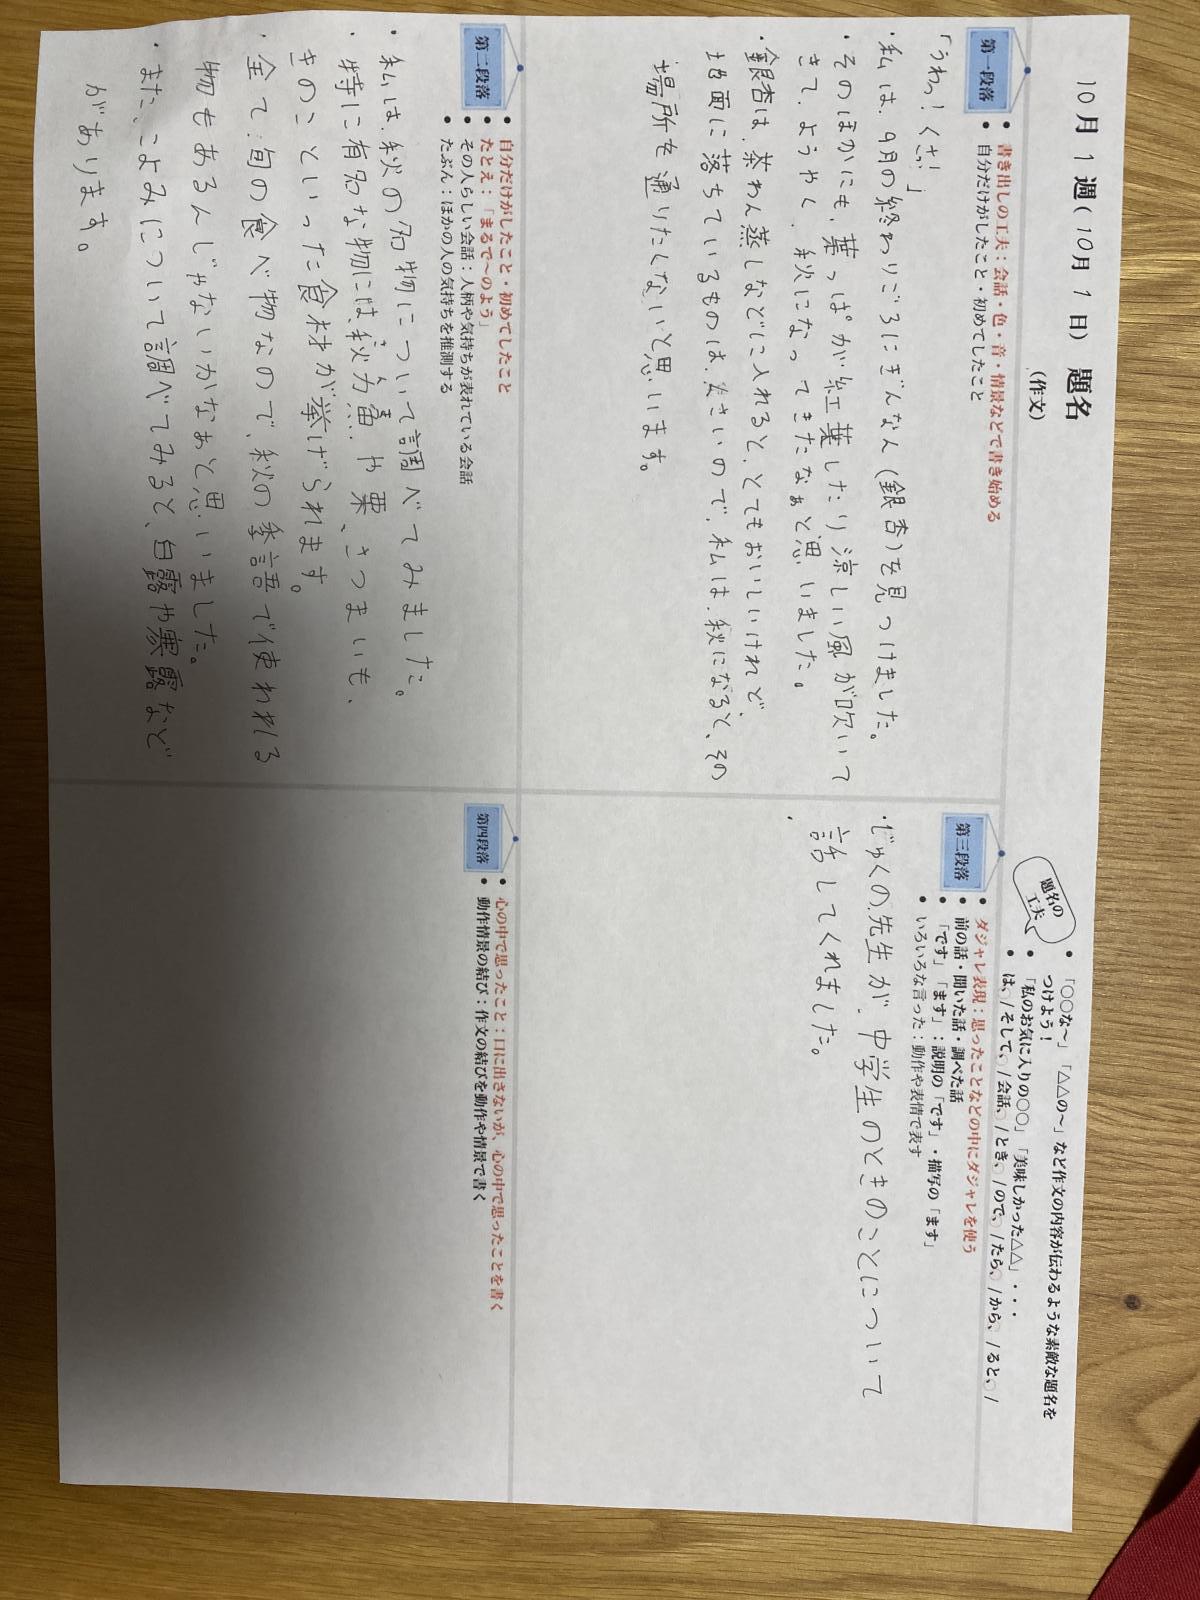 10月1週(10月1日) 題名
(作文)
題名の
工夫
• 「○○な～」「△△の～」など作文の内容が伝わるような素敵な題名を
つけよう！
• 「私のお気に入りの○○」「美味しかった△△」・・・
• は、/そして、/会話、/とき、/ので、/たら、/から、/ると、/
第一段落
• 書き出しの工夫：会話・色・音・情景などで書き始める
• 自分だけがしたこと・初めてしたこと
「うわっ！くさっ！」
・私は、9月の終わりごろにぎんなん(銀杏)を見つけました。
・そのほかにも、葉っぱが紅葉したり涼しい風が吹いて
きて、ようやく、秋になってきたなぁと思いました。
・銀杏は、茶わん蒸しなどに入れると、とてもおいしいけれど、
地面に落ちているものは、くさいので、私は、秋になると、その
場所を通りたくないと思います。
第二段落
• 自分だけがしたこと・初めてしたこと
• たとえ：「まるで～のよう」
• その人らしい会話：人柄や気持ちが表れている会話
• たぶん：ほかの人の気持ちを推測する
・私は、秋の名物について調べてみました。
・特に有名な物には、秋刀魚や栗、さつまいも、
きのこといった食材が挙げられます。
・全て、旬の食べ物なので、秋の季語で使われる
物もあるんじゃないかなぁと思いました。
・また、こよみについて調べてみると、白露や寒露など
があります。
第三段落
• ダジャレ表現：思ったことなどの中にダジャレを使う
• 前の話・聞いた話・調べた話
• 「です」「ます」：説明の「です」・描写の「ます」
• いろいろな言った：動作や表情で表す
・じゅくの先生が、中学生のときのことについて
話してくれました。
・
第四段落
• 心の中で思ったこと：口に出さないが、心の中で思ったことを書く
• 動作情景の結び：作文の結びを動作や情景で書く